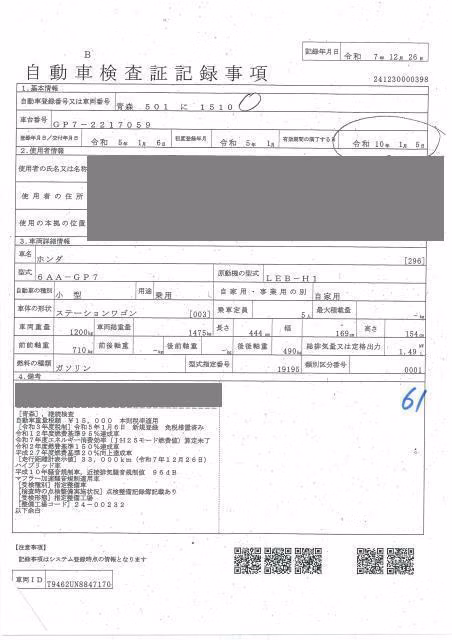 B
記録年月日 令和 7年 12月 26日
自動車検査証記録事項
241230000398
1.基本情報
自動車登録番号又は車両番号 青森 501 に 1510
車台番号 GP7-2217059
登録年月日/交付年月日 令和 5年 1月 6日 初度登録年月 令和 5年 1月 有効期間の満了する日 令和 10年 1月 5日
2.使用者情報
使用者の氏名又は名称
使用者の住所
使用の本拠の位置
3.車両詳細情報
車名 ホンダ [296]
型式 6AA-GP7 原動機の型式 LEB-H1
自動車の種別 小型 用途 乗用 自家用・事業用の別 自家用
車体の形状 ステーションワゴン [003] 乗車定員 5人 最大積載量 -kg
車両重量 1200kg 車両総重量 1475kg 長さ 444cm 幅 169cm 高さ 154cm
前前軸重 710kg 前後軸重 -kg 後前軸重 -kg 後後軸重 490kg 総排気量又は定格出力 1.49L
燃料の種類 ガソリン 型式指定番号 19195 類別区分番号 0001
4.備考
61
[青森],継続検査
自動車重量税額 ¥15,000 本則税率適用
[令和3年度税制]令和5年1月6日 新規登録 免税措置済み
令和12年度燃費基準95%達成車
令和7年度エネルギー消費効率(JH25モード燃費値)算定未了
令和2年度燃費基準150%達成車
平成27年度燃費基準20%向上達成車
[走行距離計表示値]33,000km(令和7年12月26日)
ハイブリッド車
平成10年騒音規制車,近接排気騒音規制値 96dB
マフラー加速騒音規制適用車
[受検種別]指定整備車
[検査時の点検整備実施状況]点検整備記録簿記載あり
[受検形態]指定整備工場
[整備工場コード]24-00232
以下余白
【注意事項】
記録事項はシステム登録時点の情報となります
車両ID T9462UN8847170